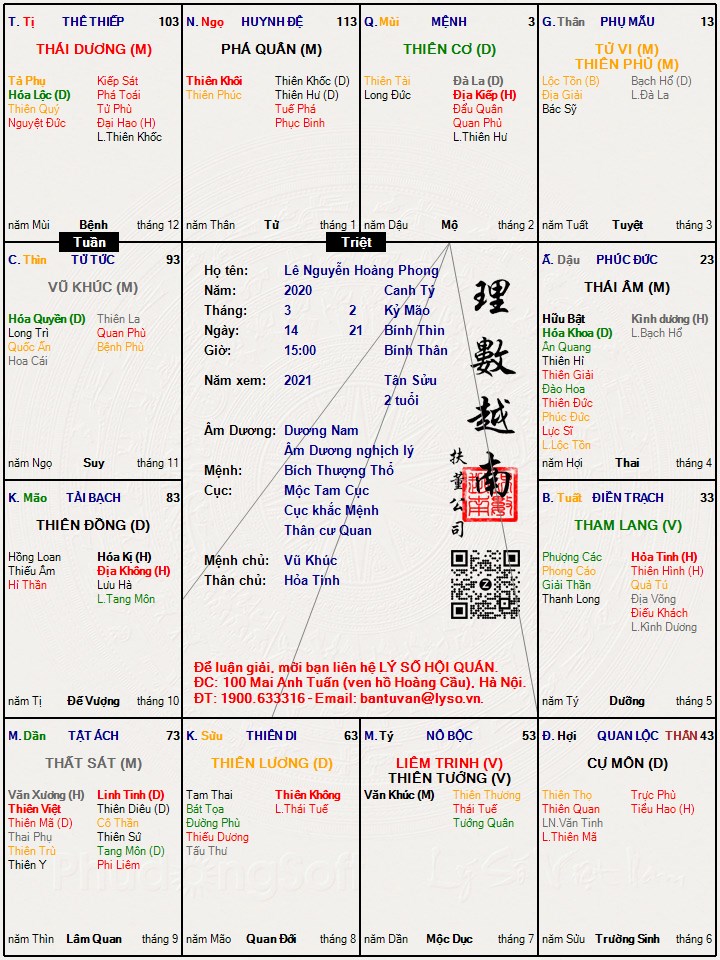 T. Tị THÊ THIẾP 103
THÁI DƯƠNG (M)
Tả Phụ Kiếp Sát
Hóa Lộc (D) Phá Toái
Thiên Quý Tử Phù
Nguyệt Đức Đại Hao (H)
L.Thiên Khốc
năm Mùi Bệnh tháng 12
N. Ngọ HUYNH ĐỆ 113
PHÁ QUÂN (M)
Thiên Khôi Thiên Khốc (D)
Thiên Phúc Thiên Hư (D)
Tuế Phá
Phục Binh
năm Thân Tử tháng 1
Q. Mùi MỆNH 3
THIÊN CƠ (D)
Thiên Tài Đà La (D)
Long Đức Địa Kiếp (H)
Đẩu Quân
Quan Phủ
L.Thiên Hư
năm Dậu Mộ tháng 2
G. Thân PHỤ MẪU 13
TỬ VI (M)
THIÊN PHỦ (M)
Lộc Tồn (B) Bạch Hổ (D)
Địa Giải L.Đà La
Bác Sỹ
năm Tuất Tuyệt tháng 3
Tuần
Triệt
C. Thìn TỬ TỨC 93
VŨ KHÚC (M)
Hóa Quyền (D) Thiên La
Long Trì Quan Phù
Quốc Ấn Bệnh Phù
Hoa Cái
năm Ngọ Suy tháng 11
Họ tên: Lê Nguyễn Hoàng Phong
Năm: 2020 Canh Tý
Tháng: 3 2 Kỷ Mão
Ngày: 14 21 Bính Thìn
Giờ: 15:00 Bính Thân
Năm xem: 2021 Tân Sửu
2 tuổi
Âm Dương: Dương Nam
Âm Dương nghịch lý
Mệnh: Bích Thượng Thổ
Cục: Mộc Tam Cục
Cục khắc Mệnh
Thân cư Quan
Mệnh chủ: Vũ Khúc
Thân chủ: Hỏa Tinh
理數越南
扶董公司
Để luận giải, mời bạn liên hệ LÝ SỐ HỘI QUÁN.
ĐC: 100 Mai Anh Tuấn (ven hồ Hoàng Cầu), Hà Nội.
ĐT: 1900.633316 - Email: bantuvan@lyso.vn.
Ấ. Dậu PHÚC ĐỨC 23
THÁI ÂM (M)
Hữu Bật Kình dương (H)
Hóa Khoa (D) L.Bạch Hổ
Ân Quang
Thiên Hỉ
Thiên Giải
Đào Hoa
Thiên Đức
Phúc Đức
Lực Sĩ
L.Lộc Tồn
năm Hợi Thai tháng 4
K. Mão TÀI BẠCH 83
THIÊN ĐỒNG (D)
Hồng Loan Hóa Kị (H)
Thiếu Âm Địa Không (H)
Hỉ Thần Lưu Hà
L.Tang Môn
năm Tị Đế Vượng tháng 10
B. Tuất ĐIỀN TRẠCH 33
THAM LANG (V)
Phượng Các Hỏa Tinh (H)
Phong Cáo Thiên Hình (H)
Giải Thần Quả Tú
Thanh Long Địa Võng
Điếu Khách
L.Kình Dương
năm Tý Dưỡng tháng 5
M. Dần TẬT ÁCH 73
THẤT SÁT (M)
Văn Xương (H) Linh Tinh (D)
Thiên Việt Thiên Diêu (D)
Thiên Mã (D) Cô Thần
Thai Phụ Thiên Sứ
Thiên Trù Tang Môn (D)
Thiên Y Phi Liêm
năm Thìn Lâm Quan tháng 9
K. Sửu THIÊN DI 63
THIÊN LƯƠNG (D)
Tam Thai Thiên Không
Bát Tọa L.Thái Tuế
Đường Phù
Thiếu Dương
Tấu Thư
năm Mão Quan Đới tháng 8
M. Tý NÔ BỘC 53
LIÊM TRINH (V)
THIÊN TƯỚNG (V)
Văn Khúc (M) Thiên Thương
Thái Tuế
Tướng Quân
năm Dần Mộc Dục tháng 7
Đ. Hợi QUAN LỘC THÂN 43
CỰ MÔN (D)
Thiên Thọ Trực Phù
Thiên Quan Tiểu Hao (H)
LN.Văn Tinh
L.Thiên Mã
năm Sửu Trường Sinh tháng 6